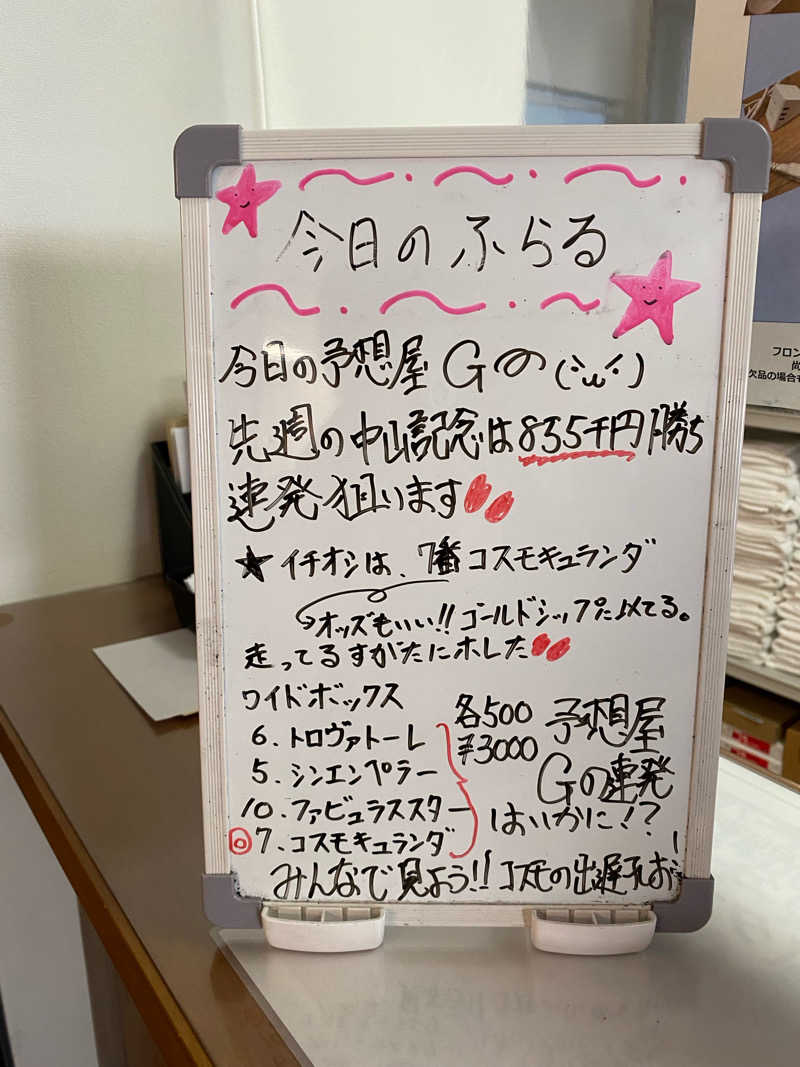 今日のふらる
今日の予想屋Gの(´ω`)
先週の中山記念は835千円勝ち
連発狙います
★イチオシは、7番コスモキュランダ
オッズもいい!!ゴールドシップに似てる。
走ってるすがたにホレた
ワイドボックス
6.トロヴァトーレ
5.シンエンペラー
10.ファビュラススター
◎7.コスモキュランダ
各500
¥3000
予想屋
Gの連発
はいかに!?
みんなで見よう!!コスモの出遅れ
フロン
欠品の場合